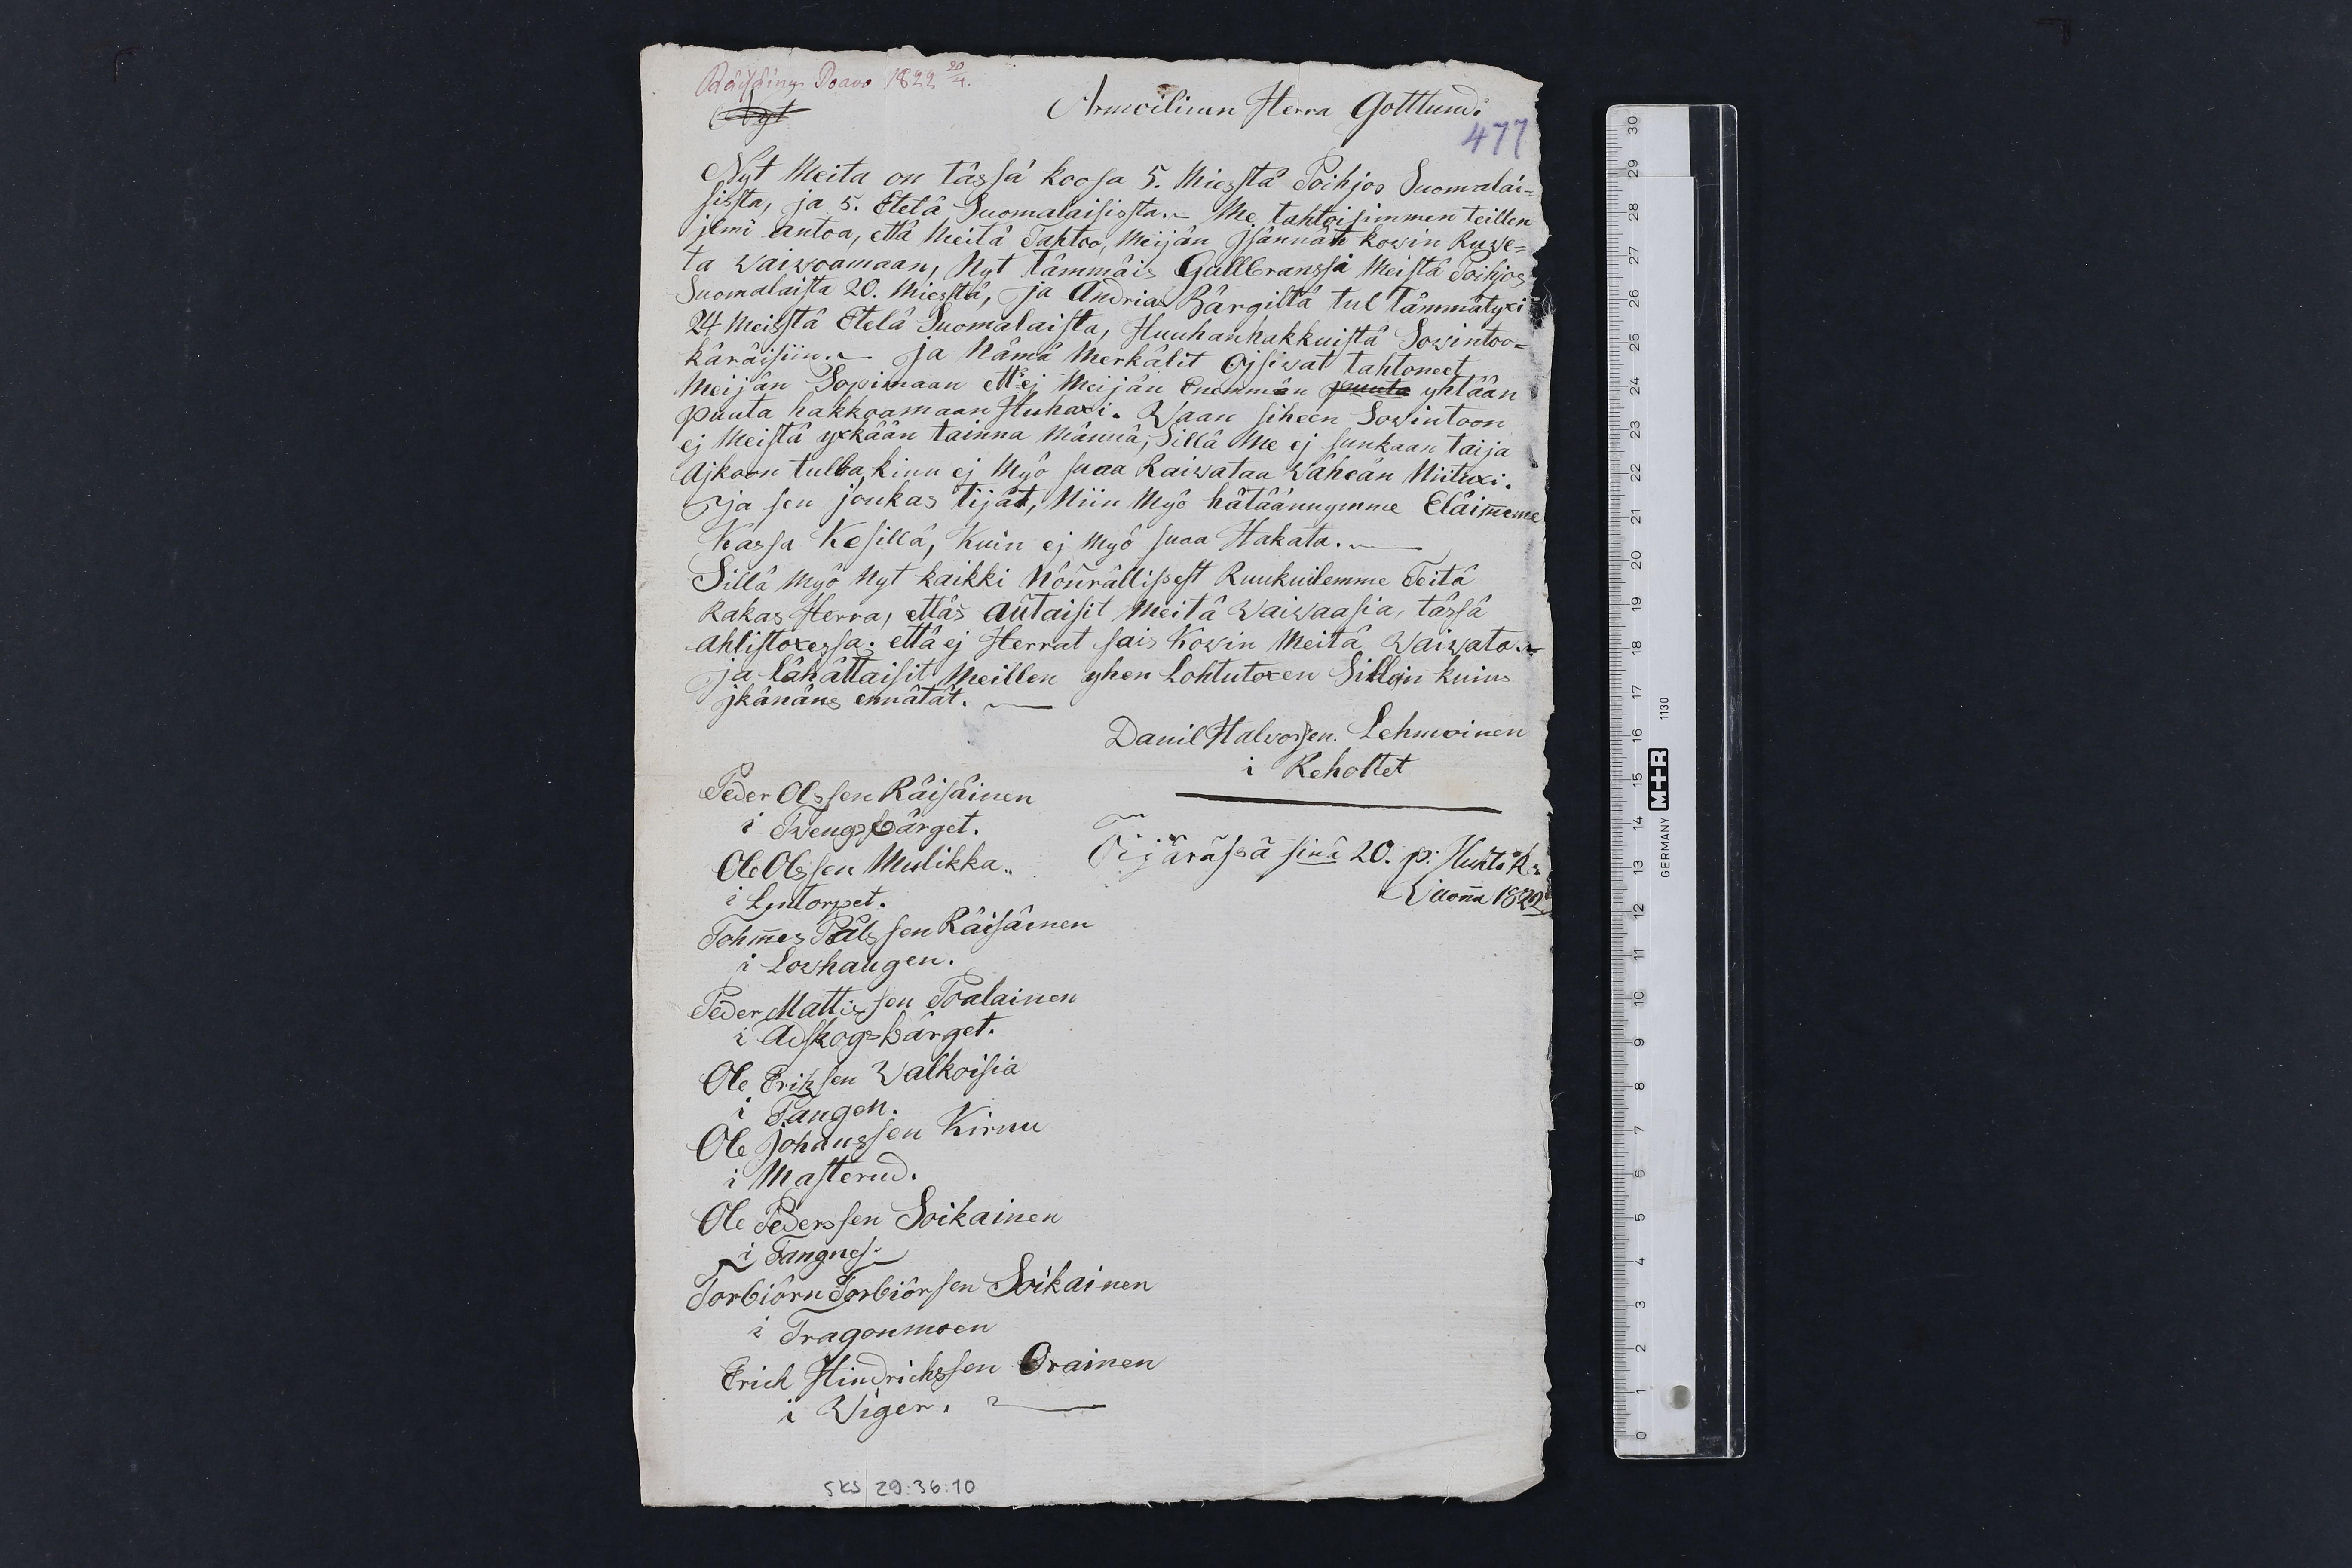 Räisäinen Poavo 1822 20/4.
Nyt
Armoilinen Herra Gottlund:
477
Nyt Meita on tässä koosa 5. Miesstä Poihjos Suomalai=
sista, ja 5. Etelä Suomalaisissta.~ Me tahtoisimmen teillen
jlmi antoa, että Meitä Tahtoo, Meijän Jsännät kowin Ruwe=
ta Waiwoamaan, Nyt Tämmäis Gullbranssi Meistä Poihjos=
Suomalaista 20. Miesstä, ja Andrias Bärgiltä tul tämmätyxi
24 Meisstä Etelä Suomalaista, Huuhanhakkuistä Sowintoo=
käräisiin.~ Ja Nämä Merkälit Ojsiwat tahtoneet
Meijän Sopimaan ett'ej Meijän Enemmän puuta yhtään
puuta hakkoamaan Huhaxi. Waan siheen Sowintoon
ej Meistä yxkään tainna Männä, Sillä Me ej sunkaan taija
Ajkaan tulla, kinn ej Myö suaa Raiwataa Wäheän Niituxi.
ja sen joukas tijät, Niin Myö hätäännymme Eläim̅eme
Kassa Kesillä, Kuin ej Myö suaa Hakata.~
Sillä Myö Nyt kaikki Nöŭrällisest Ruukuilemme Teitä
Rakas Herra, ettäs aŭtaisit Meitä Waiwaasia, tässä
ahtistoxessa: että ej Herrat sais Kowin Meitä Waiwata.~
ja Lähättaisit Meillen yhen Lohtutoxen Silloin kuins
jkänäns ennätät.~
Danil Halworsen. Lehmoinen
i Rehottet
Peder Olssen Räisäinen
i Swengsbärget.
Ole Olssen Mulikka..
i Lyntorpet.
Tohm̅es Pålssen Räisäinen
i Lowhaugen.
Peder Mattissen Poalainen
i Adskogsbärget.
Ole Erikssen Walkoisia
i Tangen.
Ole Johanssen Kirnu
i Masterud.
Ole Pederssen Soikainen
i Tangnes.
Torbiörn Torbiörsen Soikainen
i Tragonmoen
Erich Hindrichssen Orainen
i Wiger.
Öijäräsä sinä 20. p: Huhti K:
Wuon̅a 1822
SKS 29:36:10
30 29 28 27 26 25 24 23 22 21 20 19 18 17 16 15 14 13 12 11 10 9 8 7 6 5 4 3 2 1 0
GERMANY M+R 1130